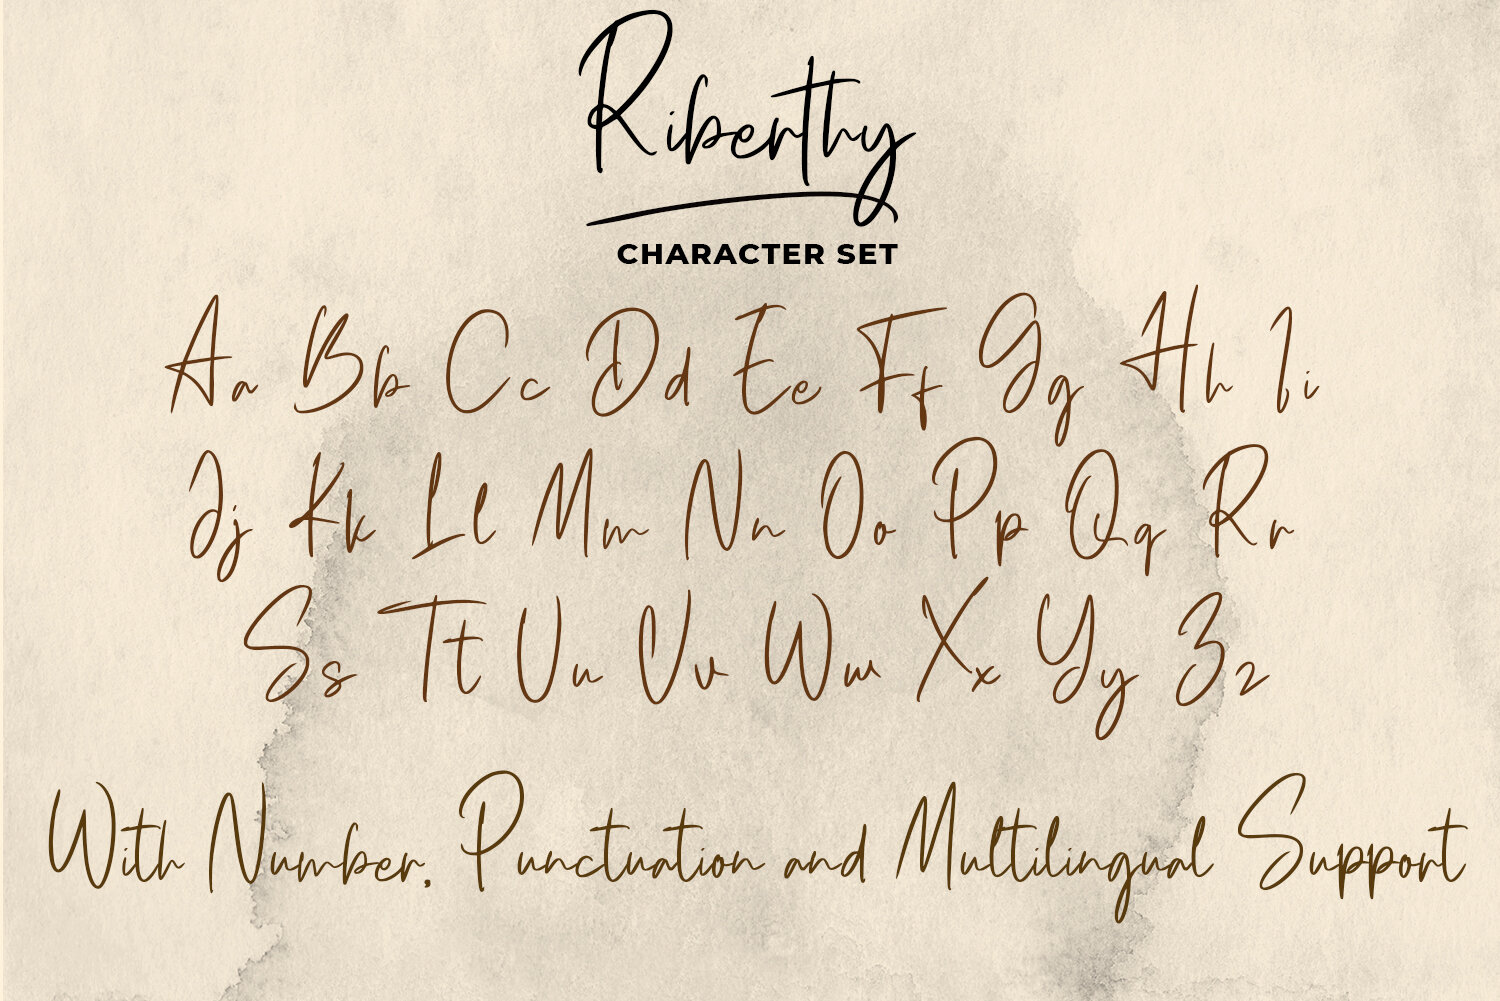 Riberthy
CHARACTER SET
Aa Bb Cc Dd Ee Ff Gg Hh Ii
Jj Kk Ll Mm Nn Oo Pp Qq Rr
Ss Tt Uu Vv Ww Xx Yy Zz
With Number, Punctuation and Multilingual Support